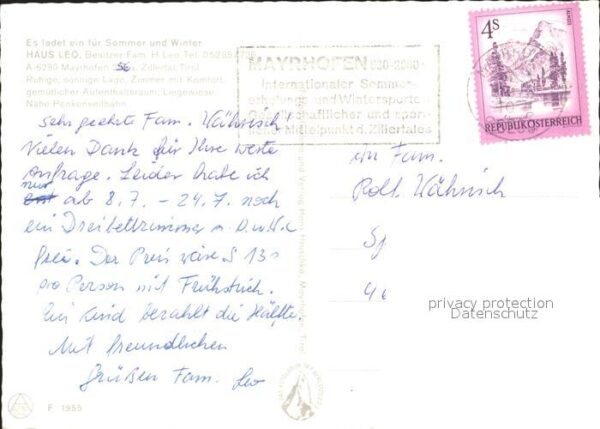 Es ladet ein für Sommer und Winter
HAUS LEO, Besitzer Fam. H. Leo, Tel. 05285/
A-6290 Mayrhofen 56, Zillertal, Tirol
Ruhige, sonnige Lage, Zimmer mit Komfort,
gemütlicher Aufenthaltsraum, Liegewiese,
Nähe Penkenseilbahn
MAYRHOFEN 630-2080
Internationaler Sommer-
erholungs- und Wintersportort
gesellschaftlicher und sport-
licher Mittelpunkt d. Zillertales
4S
REPUBLIK ÖSTERREICH
Sehr geehrte Fam. Währisch!
Vielen Dank für Ihre werte
Anfrage. Leider habe ich
nur ab 8.7. – 24.7. noch
ein Dreibettzimmer m. D.u.W.C
frei. Der Preis wäre S 130
pro Person mit Frühstück.
Ein Kind bezahlt die Hälfte.
Mit freundlichen
Grüßen Fam. Leo
An Fam.
Rolf Währisch
privacy protection
Datenschutz
F 1955